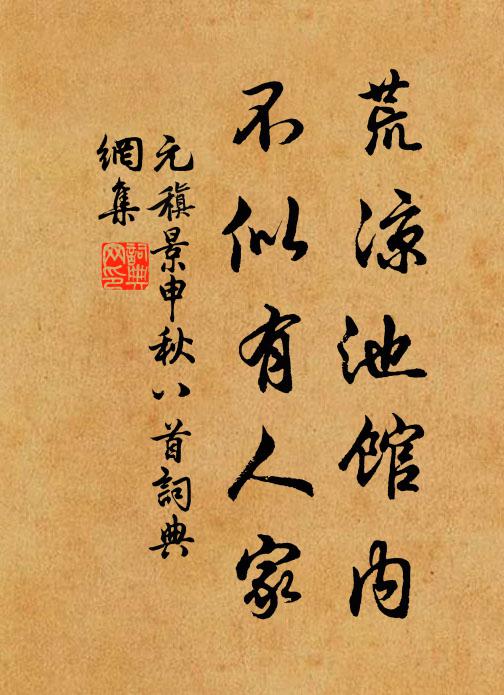 荒凉池馆内
不似有人家
元稹景申秋八首詞典
網集
詞典
网印